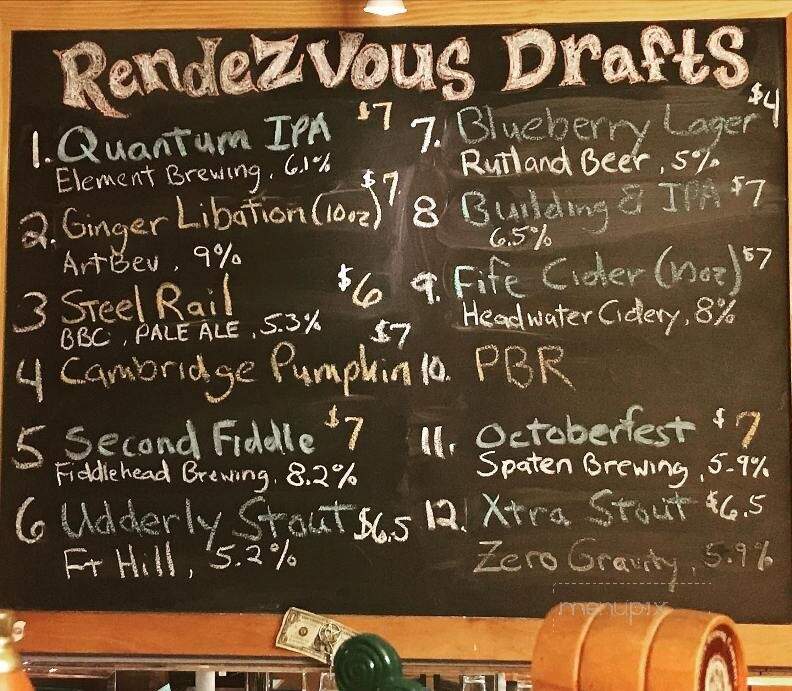 Rendezvous Drafts
1. Quantum IPA $7
Element Brewing, 6.1%
2. Ginger Libation (10oz) $7
ArtBev, 9%
3 Steel Rail $6
BBC, PALE ALE, 5.3%
4 Cambridge Pumpkin $7
5 Second Fiddle $7
Fiddlehead Brewing, 8.2%
6 Udderly Stout $6.5
Ft Hill, 5.2%
7. Blueberry Lager $4
Rutland Beer, 5%
8 Building 8 IPA $7
6.5%
9. Fife Cider (10oz) $7
Headwater Cidery, 8%
10. PBR
11. Octoberfest $7
Spaten Brewing, 5.9%
12. Xtra Stout $6.5
Zero Gravity, 5.9%
menupix